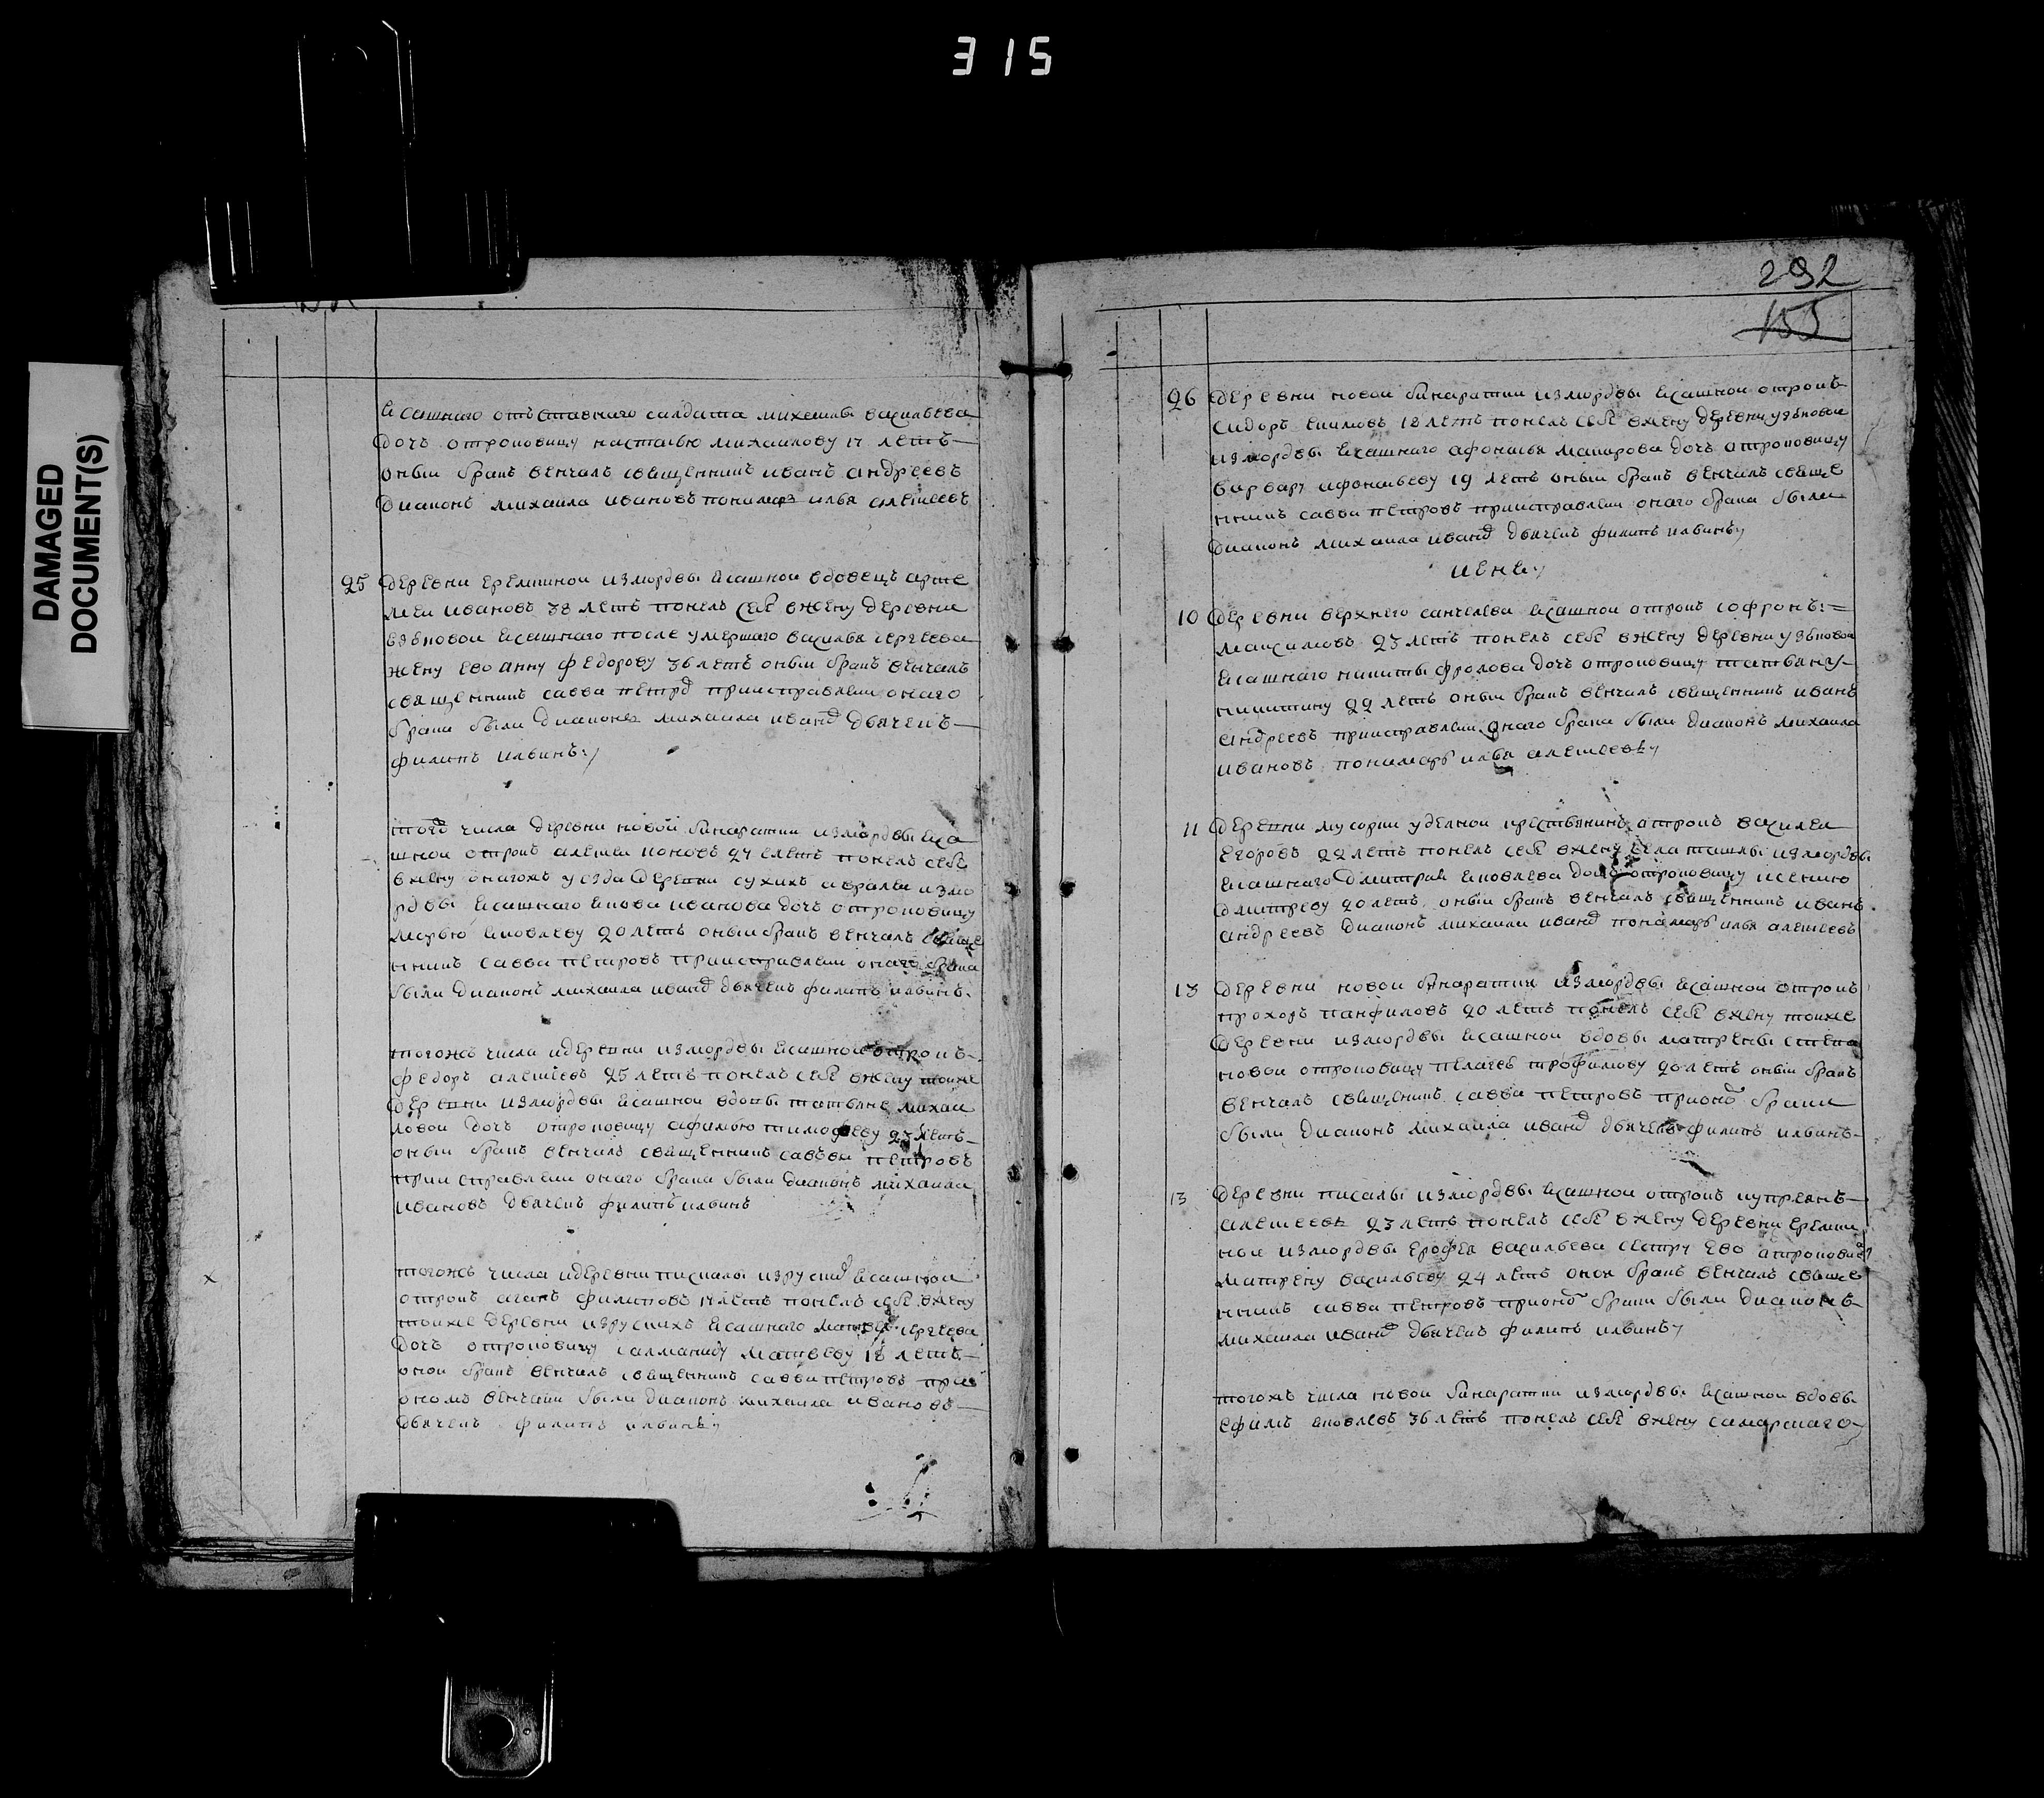 315
DAMAGED
DOCUMENT(S)
ясашнаго отъставнаго салдата михаила васильева
дочь отроковицу настасью михаилову 17 летъ
оный бракъ венчалъ священникъ иванъ андреевъ
диаконъ михаила ивановъ понамарь илья алексеевъ
25 деревни еремкиной измордвы ясашной вдовецъ арте
меи ивановъ 38 летъ понелъ себе вжену деревни
узюковой ясашнаго после умершаго василья сергеева
жену ево анну федорову 36 летъ оный бракъ венчалъ
священникъ савва петров приисправлении онаго
брака были диаконъ михаила иванов дьячекъ
филипъ ильинъ
того числа деревни новой бинаратки измордвы яса
шной отрокъ алексеи 24 летъ понелъ себе
вжену онагожъ уезда деревни сухихъ авралей измо
рдвы ясашнаго якова иванова дочь отроковицу
марью яковлеву 20 летъ оный бракъ венчалъ свяще
нникъ савва петровъ приисправлении онаго брака
были диаконъ михаила иванов дьячекъ филипъ ильинъ
тогожъ числа идеревни измордвы ясашной отрокъ
федоръ алексеевъ 25 летъ понелъ себе вжену тоиже
деревни измордвы ясашной вдовы татьяне михаи
ловой дочь отроковицу афимью тимофееву 23 летъ
оный бракъ венчалъ священникъ савва петровъ
приисправлении онаго брака были диаконъ михаила
ивановъ дьячекъ филипъ ильинъ
тогожъ числа идеревни пискалы изруских ясашной
отрокъ филиповъ 17 летъ понелъ себе вжену
тоиже деревни изрускихъ ясашнаго матвея сергеева
дочь отроковицу саламаниду матвееву 18 летъ
оной бракъ венчалъ священникъ савва петровъ при
ономъ венчании были диаконъ михаила ивановъ
дьячекъ филипъ ильинъ
292
155
26 деревни новой бинаратки измордвы ясашной отрокъ
сидоръ екимовъ 18 летъ понелъ себе вжену деревни узюковой
измордвы ясашнаго афонасья макарова дочь отроковицу
варвару афонасьеву 19 летъ оный бракъ венчалъ свяще
нникъ савва петровъ приисправлении онаго брака были
диаконъ михаила иванов дьячекъ филипъ ильинъ
июня
10 деревни верхнего санчелеева ясашной отрокъ софронъ
максимовъ 23 летъ понелъ себе вжену деревни узюковой
ясашнаго никиты фролова дочь отроковицу татьяну
никитину 22 летъ оный бракъ венчалъ священникъ иванъ
андреевъ приисправлении онаго брака были диаконъ михаила
ивановъ понамарь илья алексеевъ
11 деревни мусорки уделной крестьянинъ отрокъ василеи
егоровъ 22 летъ понелъ себе вжену села ташлы измордвы
ясашнаго дмитрия яковлева дочь отроковицу ксению
дмитреву 20 летъ оный бракъ венчалъ священникъ иванъ
андреевъ диаконъ михаила иванов понамарь илья алексеевъ
13 деревни новой бинаратки измордвы ясашной отрокъ
прохоръ панфиловъ 20 летъ понелъ себе вжену тоиже
деревни измордвы ясашной вдовы матрены степа
новой отроковицу пелагею трофимову 20 летъ оный бракъ
венчалъ священникъ савва петровъ прионом браке
были диаконъ михаила иванов дьячекъ филипъ ильинъ
13 деревни пискалы измордвы ясашной отрокъ купреянъ
алексеевъ 23 летъ понелъ себе вжену деревни еремки
ной измордвы ерофея васильева сестру ево отроковицу
матрену васильеву 24 летъ оной бракъ венчалъ свяще
нникъ савва петровъ прионом браке были диаконъ
михаила иванов дьячекъ филипъ ильинъ
тогожъ числа новой бинаратки измордвы ясашной вдовы
ефимъ яковлевъ 36 летъ понелъ себе вжену самарскаго